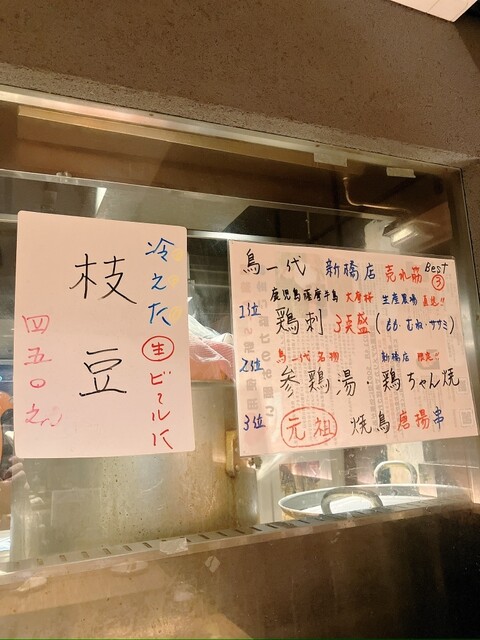 冷えた
生ビールに
枝豆
四五〇えん
鳥一代 新橋店 売れ筋 Best ③
鹿児島薩摩半島 大摩桜 生産農場 直送!!
1位 鶏刺 3種盛(もも・むね・ササミ)
鳥一代名物 新橋店 限定!!
2位 参鶏湯・鶏ちゃん焼
3位 元祖 焼鳥 唐揚串